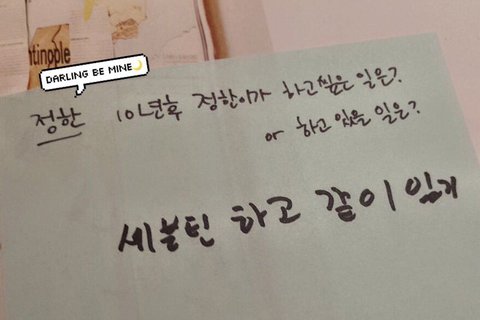 ntinople
DARLING BE MINE🌙
정한 10년후 정한이가 하고싶은 일은?
or 하고 있을 일은?
세븐틴 하고 같이 있기